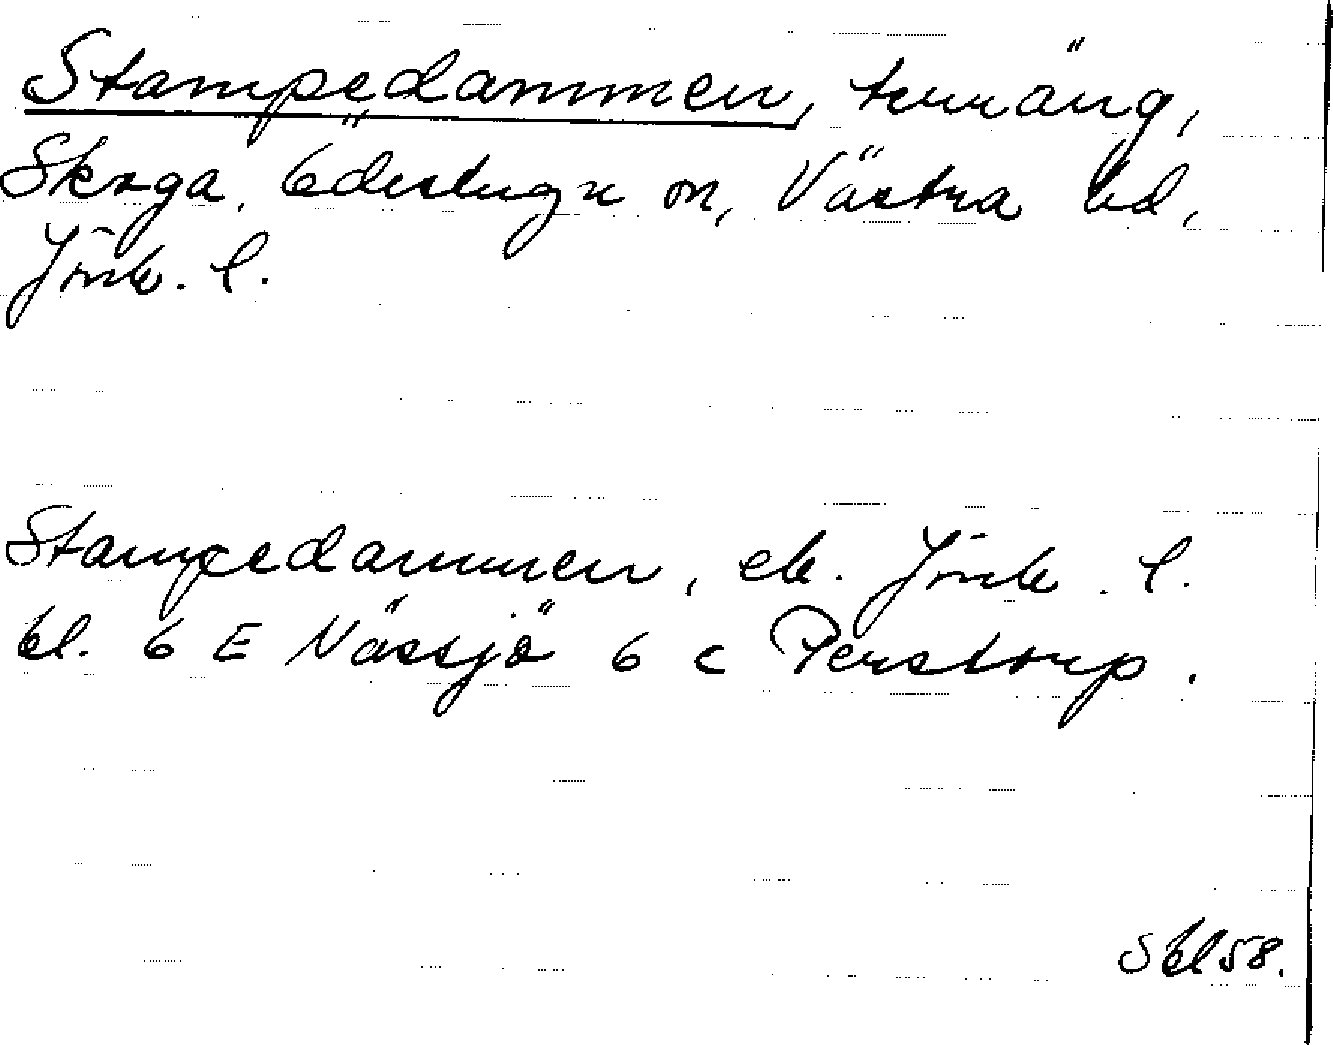 Stampedammen, terräng,
Skoga, Ödestugu sn, Västra hd,
Jönk. l.
Stampedammen, ek. Jönk. l.
bl. 6 E Nässjö 6 c Perstorp.
Sbl 58.